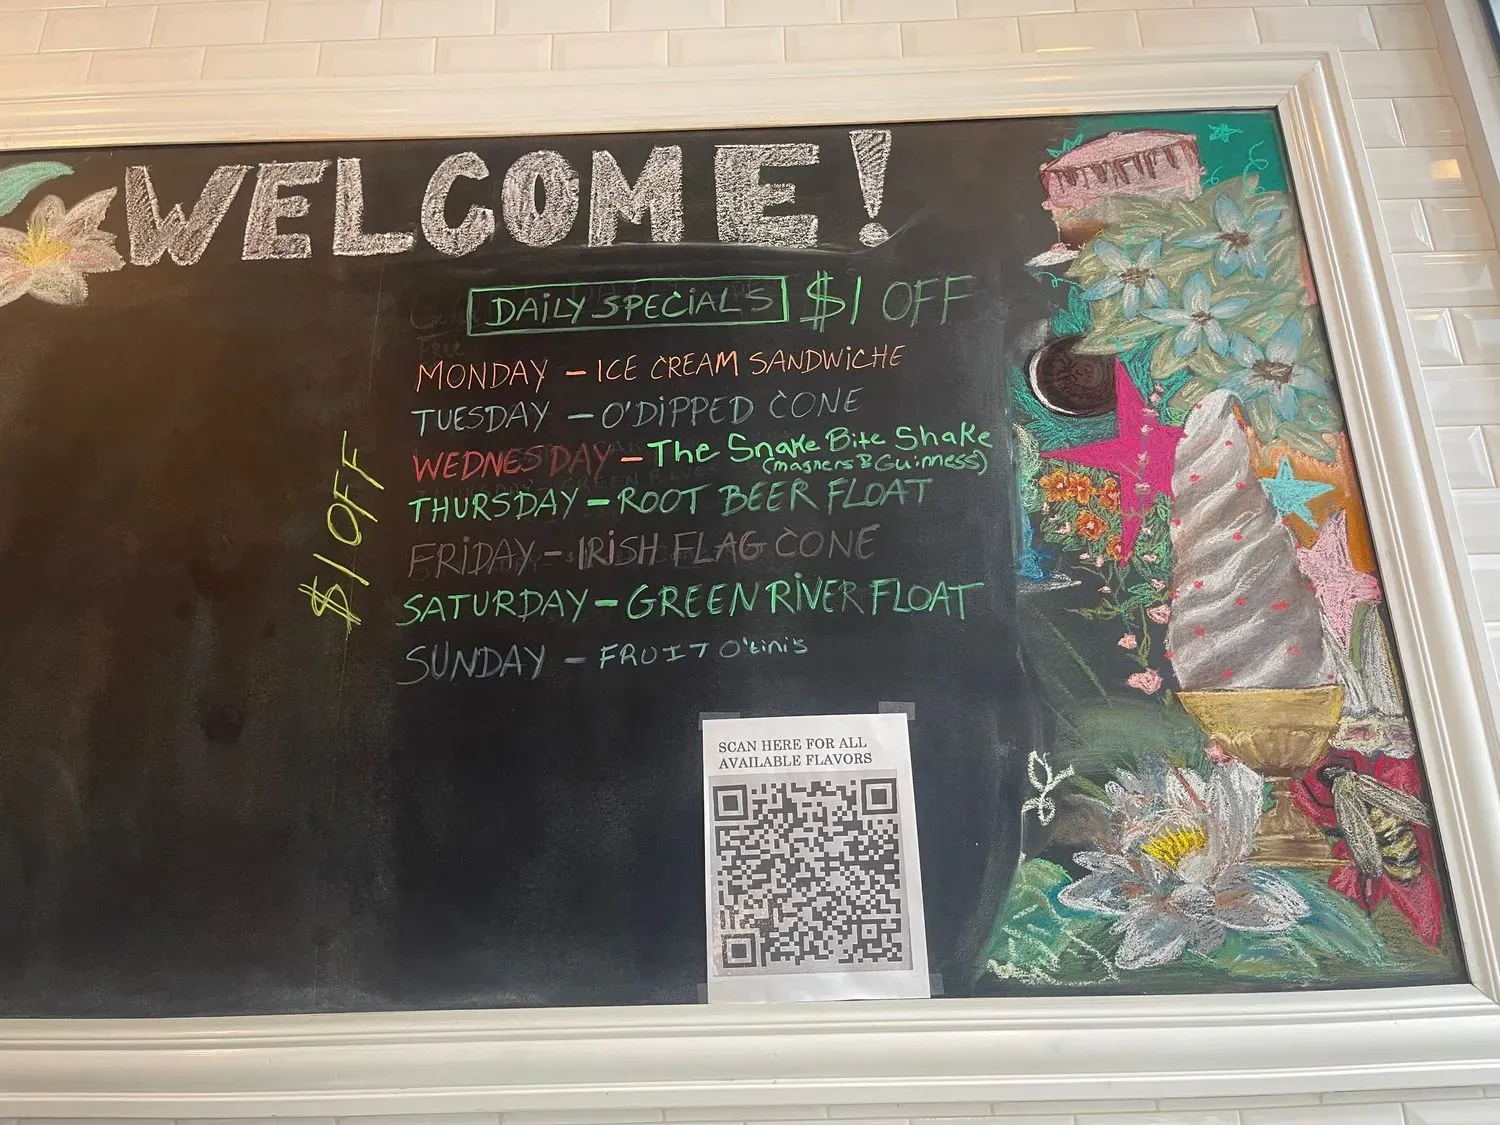 WELCOME!
DAILY SPECIALS $1 OFF
MONDAY - ICE CREAM SANDWICHE
TUESDAY - O'DIPPED CONE
WEDNESDAY - The Snake Bite Shake
(mashers & Guinness)
THURSDAY - ROOT BEER FLOAT
FRIDAY - IRISH FLAG CONE
SATURDAY - GREEN RIVER FLOAT
SUNDAY - FRUIT O'tini's
$1 OFF
SCAN HERE FOR ALL
AVAILABLE FLAVORS